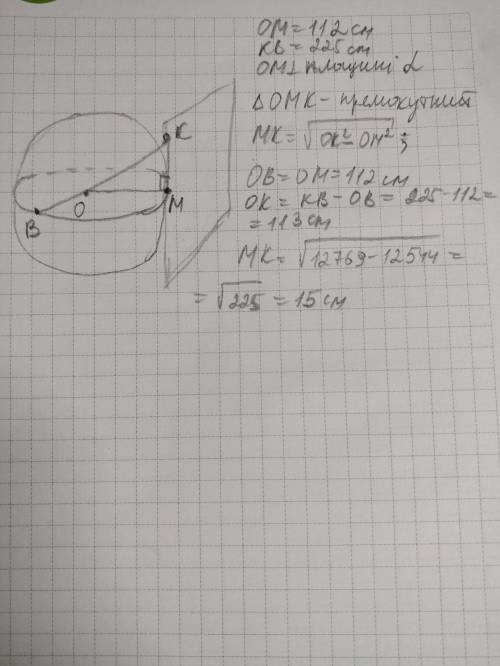 OM = 112 см
KB = 225 см
OM ⊥ площині α
△ OMK - прямокутний
MK = √OK² - OM² ;
OB = OM = 112 см
OK = KB - OB = 225 - 112 =
= 113 см
MK = √12769 - 12544 =
= √225 = 15 см
K
O
M
B